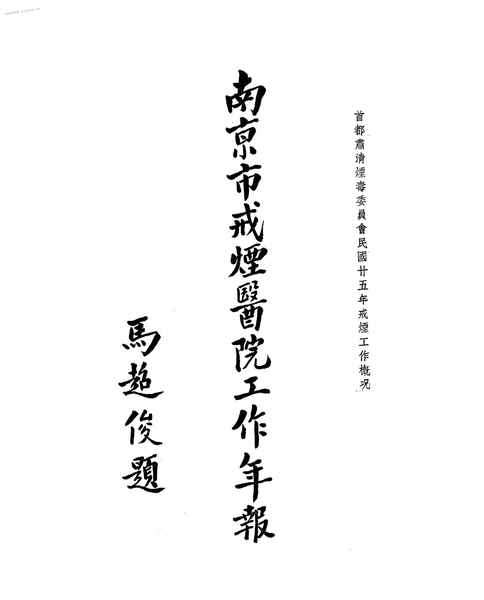 首都肅清煙毒委員會民國廿五年戒煙工作概況
南京市戒煙醫院工作年報
馬超俊題